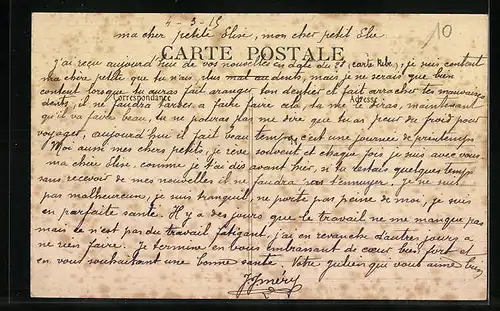 4-3-15
10
ma cher petite Elise, mon cher petit Elie
CARTE POSTALE
j'ai reçu aujourd'hui de vos nouvelles en date du 28 (carte), je suis content
ma chère petite que tu n'ais plus mal au dents, mais je ne serais que bien
content lorsque tu auras fait aranger ton den et fait arracher tes mauvaises
Correspondance
Adresse
dents, il ne faudra tarder a faire faire cela, tu me le diras, maintenant
qu'il va faire beau, tu ne pourras pas me dire que tu as peur du froid pour
voyager, aujourd'hui il fait beau temps, c'est une journée de printemps
Moi aussi mes chers petits, je rêve souvent et chaque fois je suis avec vous
ma chère Elise, comme je t'ai dis avant hier, si tu restais quelques temps
sans recevoir de mes nouvelles il ne faudra pas t'ennuyer, je ne suis
pas malheureux, je suis tranquil, ne porte pas peine de moi, je suis
en parfaite santé. Il y a des jours que le travail ne me manque pas
mais ce n'est pas du travail fatigant, j'ai en revanche d'autres jours a
ne rien faire. Je termine en vous embrassant de cœur bien fort et
en vous souhaitant une bonne santé. Votre julien qui vous aime bien
J. Jméry